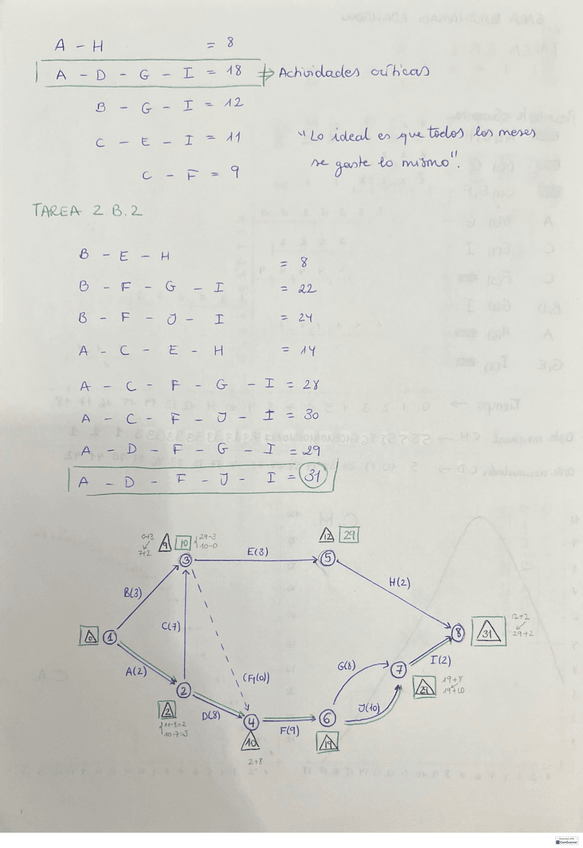 A - H = 8
A - D - G - I = 18 ⇒ Actividades críticas
B - G - I = 12
C - E - I = 11
"Lo ideal es que todos los meses
se gaste lo mismo".
C - F = 9
TAREA 2 B.2
B - E - H = 8
B - F - G - I = 22
B - F - J - I = 24
A - C - E - H = 14
A - C - F - G - I = 28
A - C - F - J - I = 30
A - D - F - G - I = 29
A - D - F - J - I = 31
0+3
7+2
9
10
29-3
10-0
3
E(3)
12
29
5
B(3)
H(2)
C(7)
0
1
8
31
12+2
29+2
A(2)
(F1(0)
G(8)
7
I(2)
2
2
10-8=2
10-7=3
D(8)
4
10
2+8
F(9)
6
19
J(10)
29
19+8
19+10